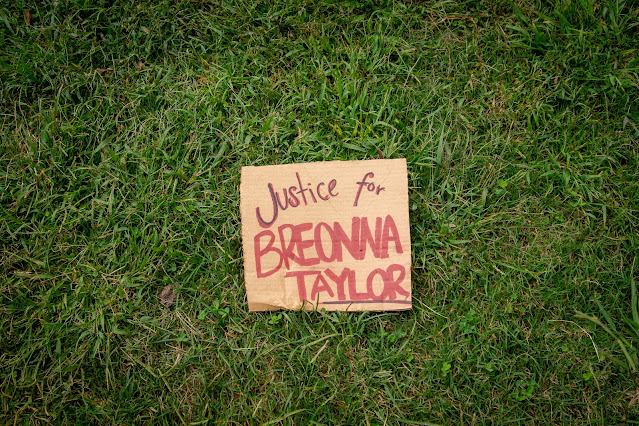 Justice for
BREONNA
TAYLOR